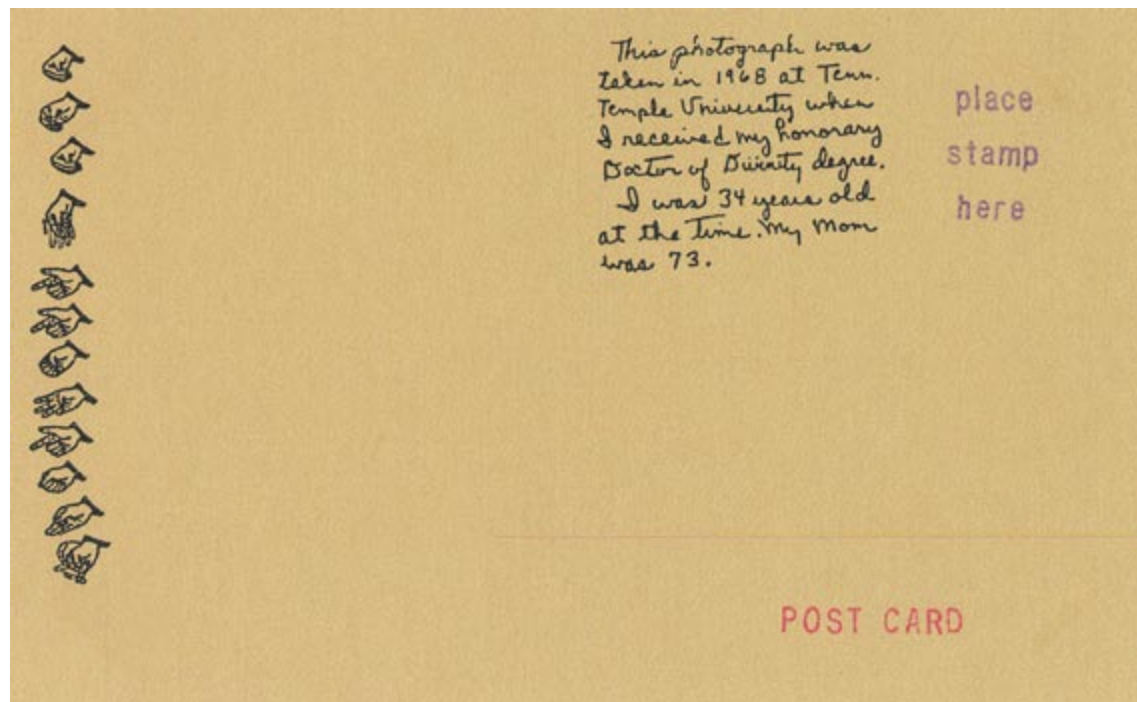 This photograph was
taken in 1968 at Tenn.
Temple University when
I received my honorary
Doctor of Divinity degree.
I was 34 years old
at the time. My Mom
was 73.
place
stamp
here
POST CARD